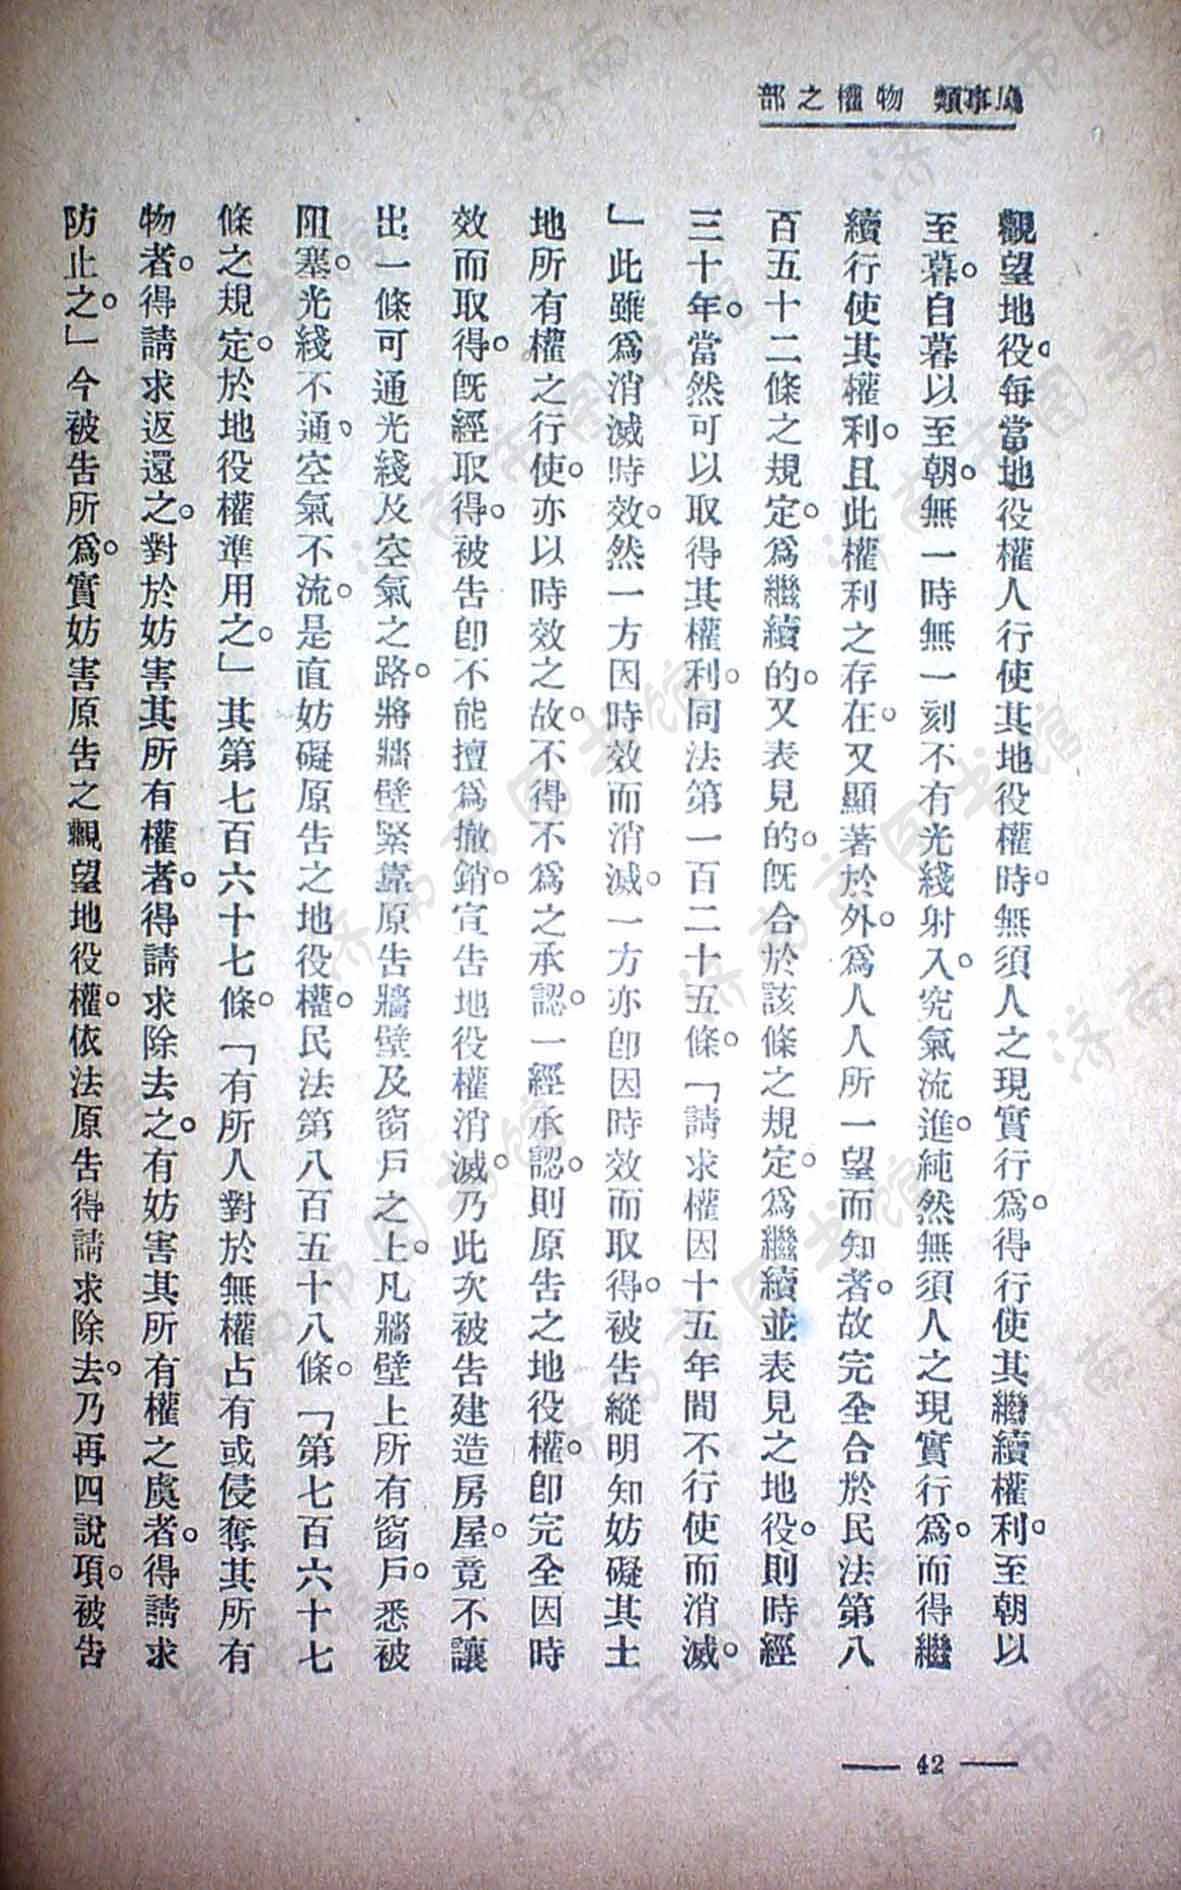 民事類　物權之部
觀望地役。每當地役權人行使其地役權時。無須人之現實行爲。得行使其繼續權利。至朝以
至暮。自暮以至朝。無一時無一刻不有光綫射入。究氣流進。純然無須人之現實行爲。而得繼
續行使其權利。且此權利之存在。又顯著於外。爲人人所一望而知者。故完全合於民法第八
百五十二條之規定。爲繼續的。又表見的。旣合於該條之規定。爲繼續並表見之地役。則時經
三十年。當然可以取得其權利。同法第一百二十五條。「請求權因十五年間不行使而消滅。
」此雖爲消滅時效。然一方因時效而消滅。一方亦卽因時效而取得。被告縱明知妨礙其土
地所有權之行使。亦以時效之故。不得不爲之承認。一經承認。則原告之地役權。卽完全因時
效而取得。旣經取得。被告卽不能擅爲撤銷。宣告地役權消滅。乃此次被告建造房屋。竟不讓
出一條可通光綫及空氣之路。將牆壁緊靠原告牆壁及窗戶之上。凡牆壁上所有窗戶。悉被
阻塞。光綫不通、空氣不流。是直妨礙原告之地役權。民法第八百五十八條。「第七百六十七
條之規定。於地役權準用之。」其第七百六十七條。「有所人對於無權占有或侵奪其所有
物者。得請求返還之。對於妨害其所有權者。得請求除去之。有妨害其所有權之虞者。得請求
防止之。」今被告所爲。實妨害原告之觀望地役權。依法原告得請求除去。乃再四說項。被告
— 42 —
济南市图书馆